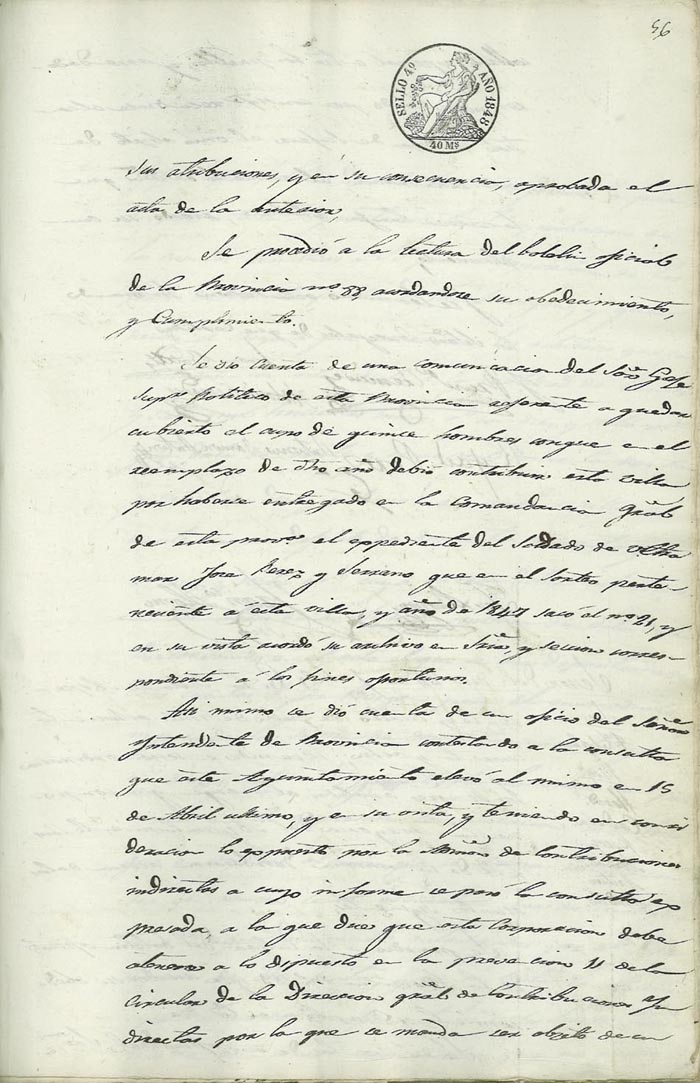 56
SELLO 4º AÑO 1848
40 Ms
sus atribuciones, y en su consecuencia, aprobada el
acta de la anterior,
Se procedió a la lectura del boletin oficial
de la Provincia nº 52, acordandose su obedecimiento,
y Cumplimiento.
Se dio cuenta de una comunicacion del Sor Gefe
supr Politico de esta Provincia referente a quedar
cubierto el cupo de quince hombres conque en el
reemplazo de dho año debió contribuir esta villa
por haberse entregado en la Comandancia Gral
de esta prova el expediente del Soldado de Ultra
mar Jose Perez y Serrano que en el Sorteo perte
neciente á esta villa, y año de 1847 sacó el nº 21, y
en su vista acordó su archivo en Sria, y seccion corres-
pondiente á los fines oportunos.
Asi mismo se dió cuenta de un oficio del Señor
Yntendente de Provincia contestando a la consulta
que este Ayuntamiento elevó al mismo en 15
de Abril ultimo, y en su vista, y teniendo en consi
deracion lo expuesto por la Admon de Contribuciones
indirectas a cuyo informe se pasó la consulta ex
presada, a la que dice que esta Corporacion debe
atenerse a lo dispuesto en la prevencion 11 de la
circular de la Direccion gral de Contribuciones Yn
directas por la que se manda ser objeto de un